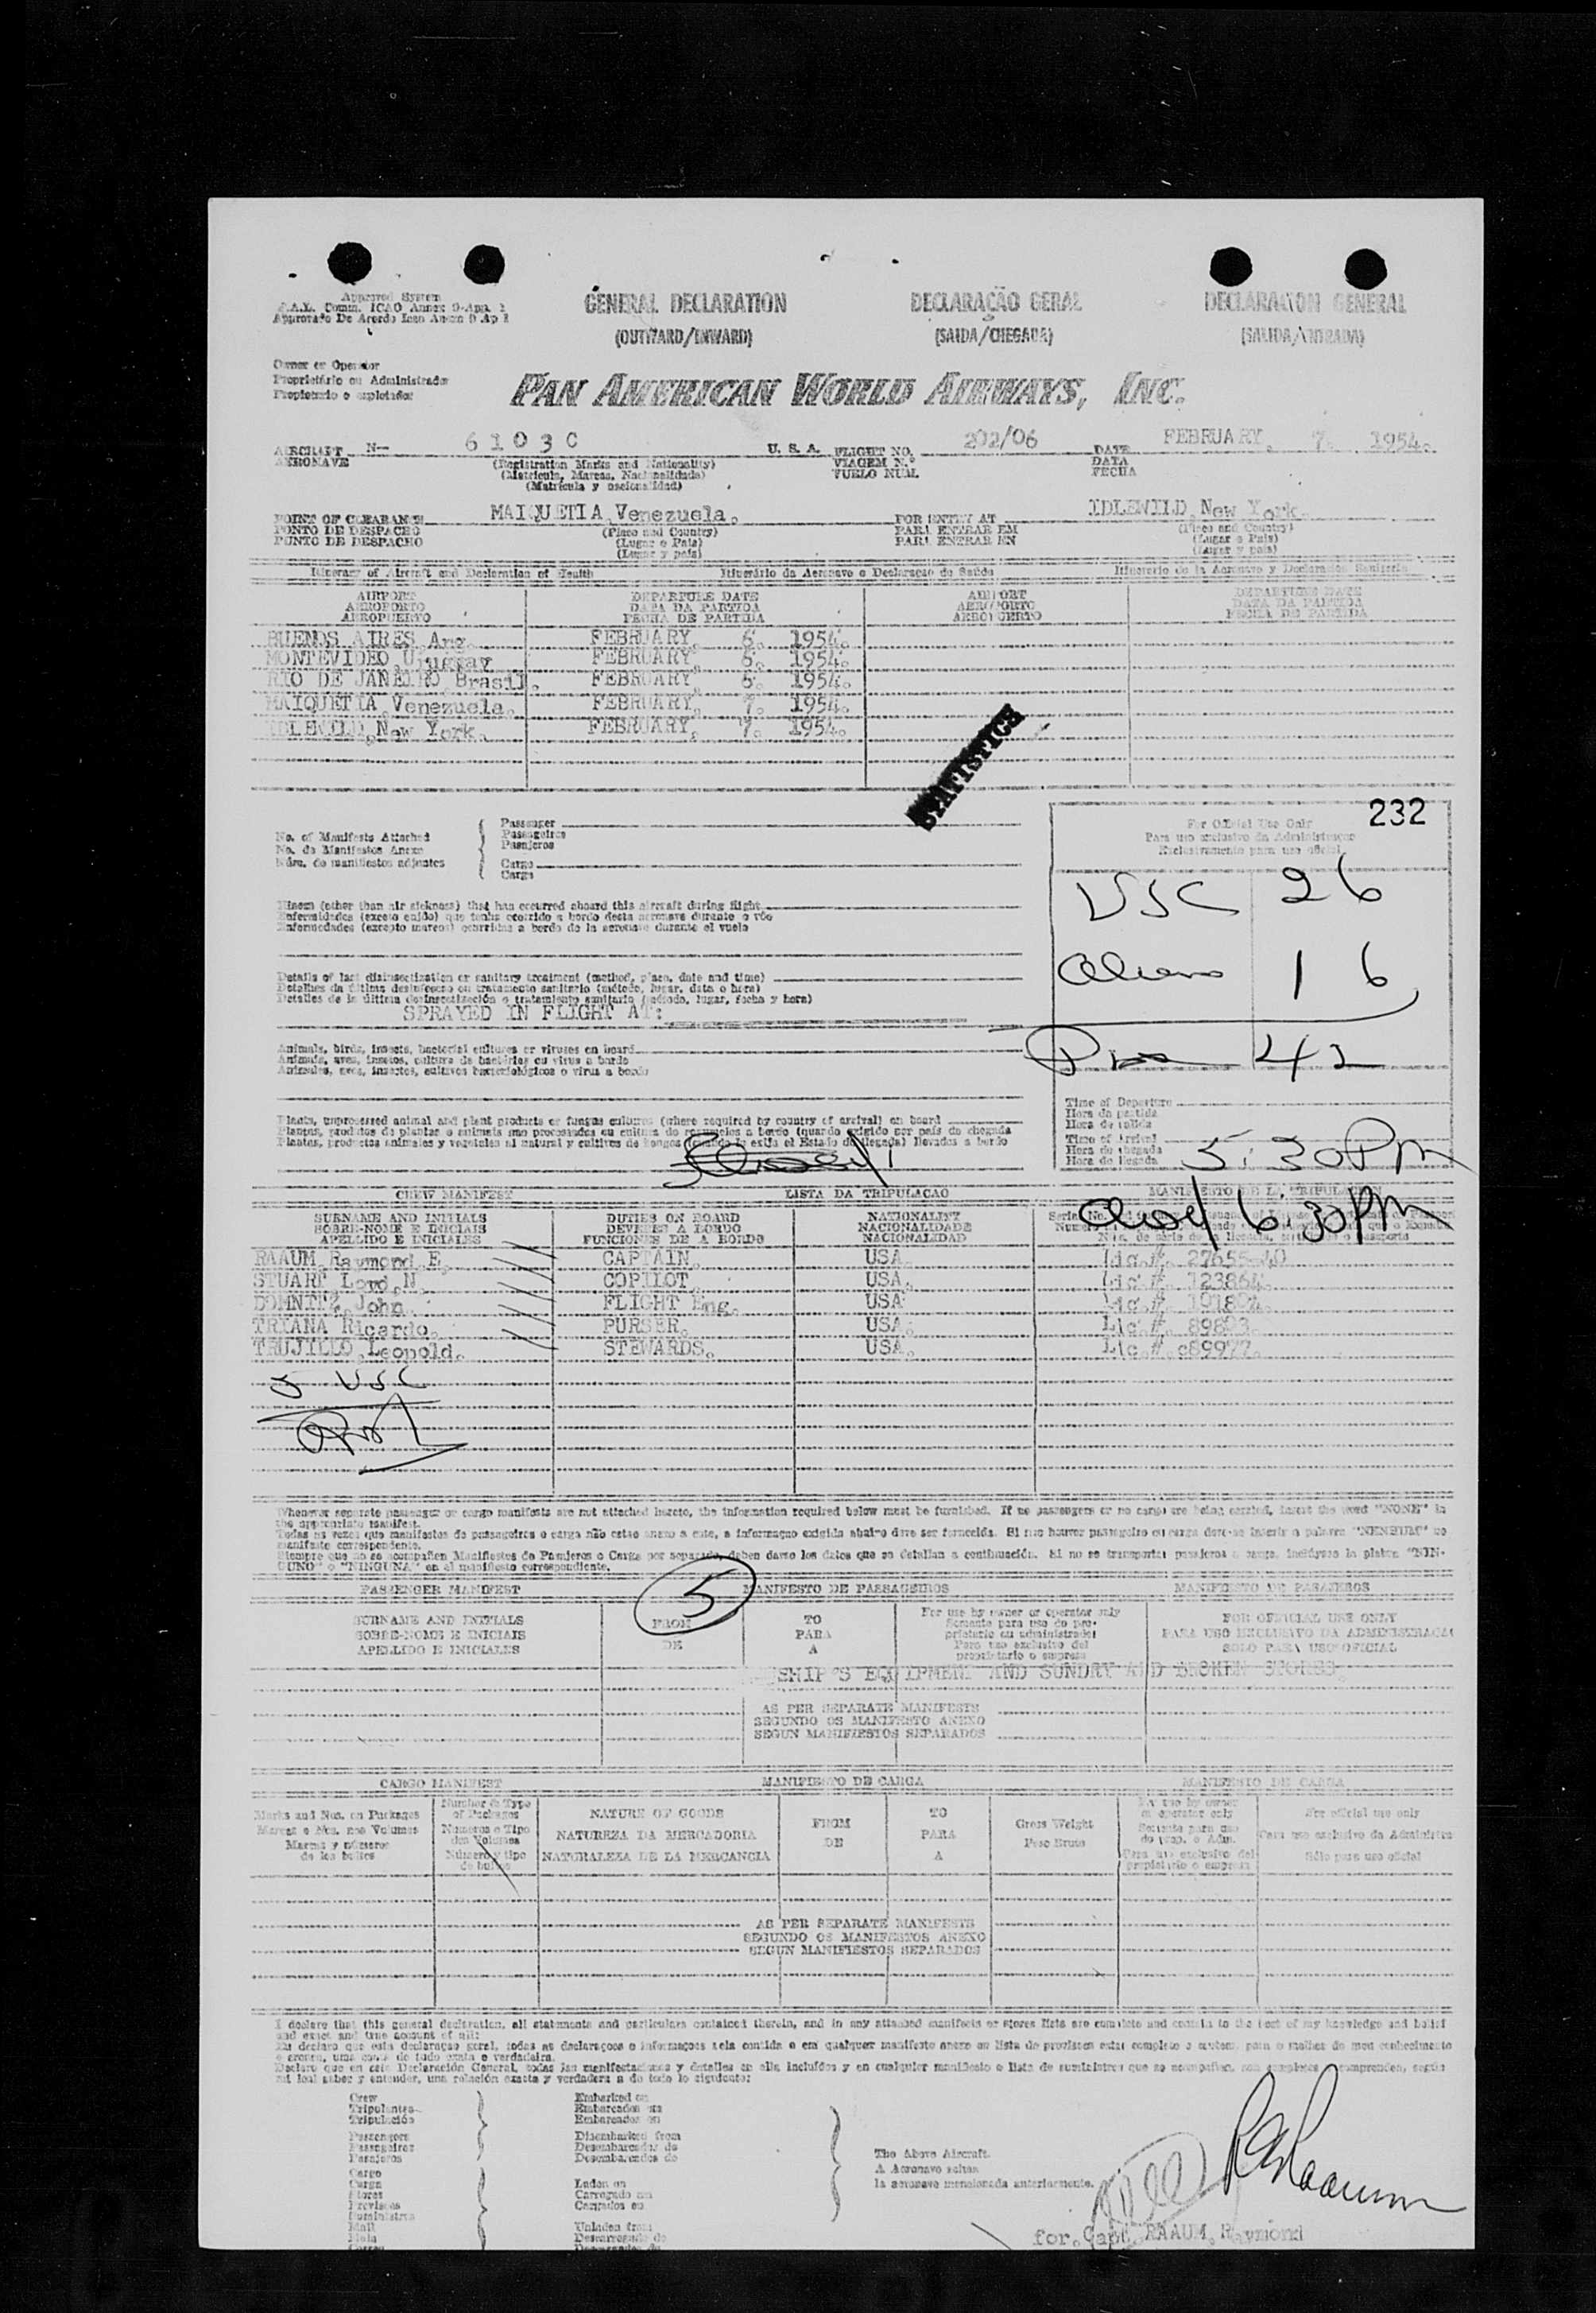 Approved System
Comm. ICAO Annex 9-App. 1
GENERAL DECLARATION
(OUTWARD/INWARD)
DECLARAÇÃO GERAL
(SAIDA/CHEGADA)
DECLARACION GENERAL
(SALIDA/ENTRADA)
Owner or Operator
Proprietário ou Administrador
Propietario o explotador
PAN AMERICAN WORLD AIRWAYS, INC.
AIRCRAFT N- 6103C U. S. A. FLIGHT NO. 202/06 DATE FEBRUARY, 7. 1954.
AERONAVE (Registration Marks and Nationality) VIAGEM N.º DATA
(Matricula, Marcas, Nacionalidade) VUELO NUM. FECHA
(Matrícula y nacionalidad)
POINT OF CLEARANCE MAIQUETIA, Venezuela. FOR ENTRY AT IDLEWILD, New York.
PONTO DE DESPACHO (Place and Country) PARA ENTRAR EM (Place and Country)
PUNTO DE DESPACHO (Lugar e Pais) PARA ENTRAR EN (Lugar e Pais)
(Lugar y país) (Lugar y país)
Itinerary of Aircraft and Declaration of Health Itinerário da Aeronave e Declaração de Saúde Itinerario de la Aeronave y Declaración Sanitaria
AIRPORT DEPARTURE DATE AIRPORT DEPARTURE DATE
AEROPORTO DATA DA PARTIDA AEROPORTO DATA DA PARTIDA
AEROPUERTO FECHA DE PARTIDA AEROPUERTO FECHA DE PARTIDA
BUENOS AIRES, Arg. FEBRUARY, 6. 1954.
MONTEVIDEO, Uruguay FEBRUARY, 6. 1954.
RIO DE JANEIRO, Brasil. FEBRUARY, 6. 1954.
MAIQUETIA, Venezuela. FEBRUARY, 7. 1954.
IDLEWILD, New York. FEBRUARY, 7. 1954.
STATISTICS
232
No. of Manifests Attached
No. de Manifestos Anexo
Núm. de manifiestos adjuntos
Passenger
Passageiros
Pasajeros
Cargo
Carga
For Official Use Only
Para uso exclusivo da Administração
Exclusivamente para uso oficial
USC 26
Aliens 16
Pass 42
Illness (other than air sickness) that has occurred aboard this aircraft during flight
Enfermidades (exceto enjôo) que tenha ocorrido a bordo desta aeronave durante o vôo
Enfermedades (excepto mareos) ocurridas a bordo de la aeronave durante el vuelo
Details of last disinsectization or sanitary treatment (method, place, date and time)
Detalhes da última desinfecção ou tratamento sanitário (método, lugar, data e hora)
Detalles de la última desinsectización o tratamiento sanitario (método, lugar, fecha y hora)
SPRAYED IN FLIGHT AT:
Animals, birds, insects, bacterial cultures or viruses on board
Animais, aves, insetos, cultura de bactérias ou virus a bordo
Animales, aves, insectos, cultivos bacteriológicos o virus a bordo
Plants, unprocessed animal and plant products or fungus cultures (where required by country of arrival) on board
Plantas, produtos de plantas e animais não processados ou cultura de cogumelos a bordo (quando exigido por país de chegada
Plantas, productos animales y vegetales al natural y cultivos de hongos (cuando lo exija el Estado de llegada) llevados a bordo
Time of Departure
Hora da partida
Hora de salida
Time of Arrival
Hora da chegada
Hora de llegada
5:30 PM
6:30 PM
CREW MANIFEST LISTA DA TRIPULACAO MANIFIESTO DE LA TRIPULACION
SURNAME AND INITIALS DUTIES ON BOARD NATIONALITY
SOBRE-NOME E INICIAIS DEVERES A BORDO NACIONALIDADE
APELLIDO E INICIALES FUNCIONES DE A BORDO NACIONALIDAD
RAAUM, Raymond, E. CAPTAIN. USA. Lic.#. 27655-40
STUART, Loyd, N. COPILOT. USA. Lic.#. 123864.
DOMNITZ, John. FLIGHT Eng. USA. Lic.#. 191804.
TRIANA Ricardo. PURSER. USA. Lic.#. 89893.
TRUJILLO, Leopold. STEWARDS. USA. Lic.#. c89977.
5 USC
Whenever separate passenger or cargo manifests are not attached hereto, the information required below must be furnished. If no passengers or no cargo are being carried, insert the word "NONE" in
the appropriate manifest.
Todas as vezes que manifestos de passageiros e carga não estão anexo a este, a informação exigida abaixo deve ser fornecida. Si não houver passageiro ou carga deve-se inserir a palavra "NENHUM" no
manifesto correspondente.
Siempre que no se acompañen Manifiestos de Pasajeros o Carga por separado, deben darse los datos que se detallan a continuación. Si no se transportan pasajeros o carga, inclúyase la palabra "NIN-
GUNO" o "NINGUNA" en el manifiesto correspondiente.
5
PASSENGER MANIFEST MANIFESTO DE PASSAGEIROS MANIFIESTO DE PASAJEROS
SURNAME AND INITIALS FROM TO For use by owner or operator only FOR OFFICIAL USE ONLY
SOBRE-NOME E INICIAIS DE PARA Somente para uso do pro- PARA USO EXCLUSIVO DA ADMINISTRAÇÃO
APELLIDO E INICIALES A prietario ou administrador SOLO PARA USO OFICIAL
Para uso exclusivo del
propietario o empresa
SHIP'S EQUIPMENT AND SUNDRY AND BROKEN STORES.
AS PER SEPARATE MANIFESTS
SEGUNDO OS MANIFESTO ANEXO
SEGUN MANIFIESTOS SEPARADOS
CARGO MANIFEST MANIFIESTO DE CARGA MANIFIESTO DE CARGA
Marks and Nos. on Packages
Marcas e Nos. nos Volumes
Marcas y números
de los bultos
Number & Type
of Packages
Números e Tipo
dos Volumes
Número y tipo
de bultos
NATURE OF GOODS
NATUREZA DA MERCADORIA
NATURALEZA DE LA MERCANCIA
FROM
DE
TO
PARA
A
Gross Weight
Peso Bruto
For use by owner
or operator only
Somente para uso
do prop. e Adm.
Para uso exclusivo del
propietario o empresa
For official use only
Para uso exclusivo da Administra
Sólo para uso oficial
AS PER SEPARATE MANIFESTS
SEGUNDO OS MANIFESTOS ANEXO
SEGUN MANIFIESTOS SEPARADOS
I declare that this general declaration, all statements and particulars contained therein, and in any attached manifests or stores lists are complete and contain to the best of my knowledge and belief
and exact and true account of all:
Eu declaro que esta declaração geral, todas as declarações e informações nela contida e em qualquer manifesto anexo ou lista de provisões estão completo e contem para o melhor do meu conhecimento
Declaro que en esta Declaración General, todas las manifestaciones y detalles en ella incluídos y en cualquier manifiesto o lista de suministros que se acompañen, son completos y comprenden, según
mi leal saber y entender, una relación exacta y verdadera a de todo lo siguiente:
Crew
Tripulantes
Tripulación
Passengers
Passageiros
Pasajeros
Cargo
Carga
Stores
Provisões
Suministros
Mail
Mala
Embarked on
Embarcados na
Embarcados en
Disembarked from
Desembarcados de
Desembarcados de
Laden on
Carregado em
Cargados en
Unladen from
Descarregado de
The Above Aircraft.
A Aeronave acima
la aeronave mencionada anteriormente.
RERaaum
for. Capt. RAAUM, Raymond